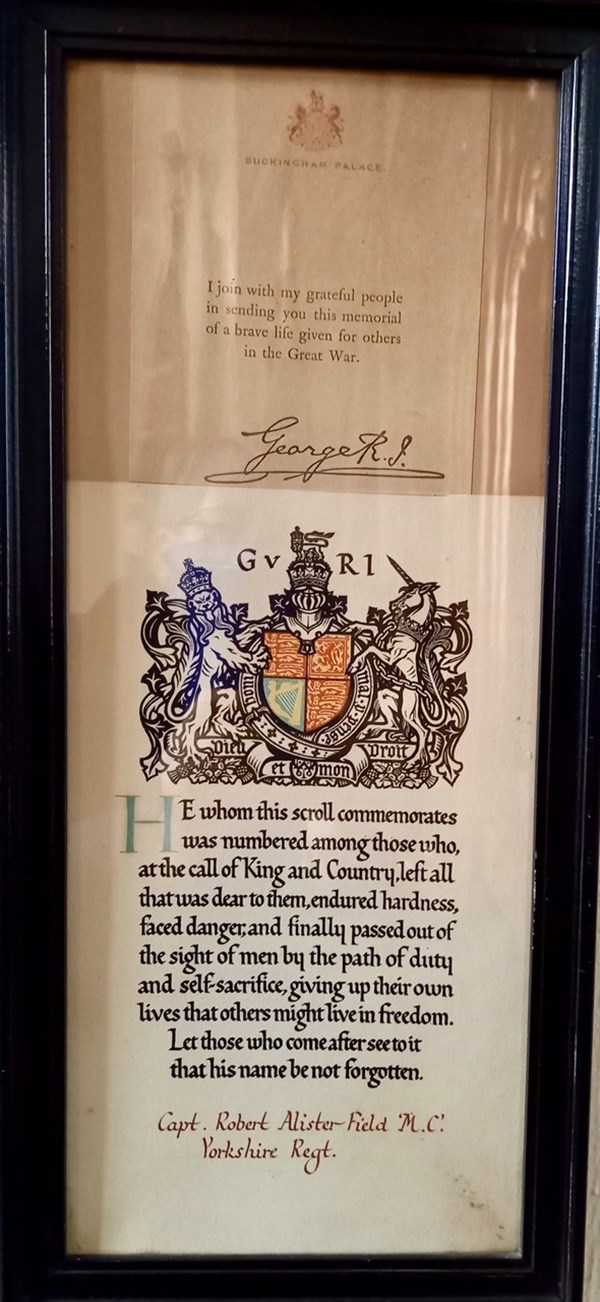 BUCKINGHAM PALACE
I join with my grateful people
in sending you this memorial
of a brave life given for others
in the Great War.
George R.I.
G V R I
Dieu et mon Droit
HE whom this scroll commemorates
was numbered among those who,
at the call of King and Country, left all
that was dear to them, endured hardness,
faced danger, and finally passed out of
the sight of men by the path of duty
and self-sacrifice, giving up their own
lives that others might live in freedom.
Let those who come after see to it
that his name be not forgotten.
Capt. Robert Alister Field 'M.C.'
Yorkshire Regt.